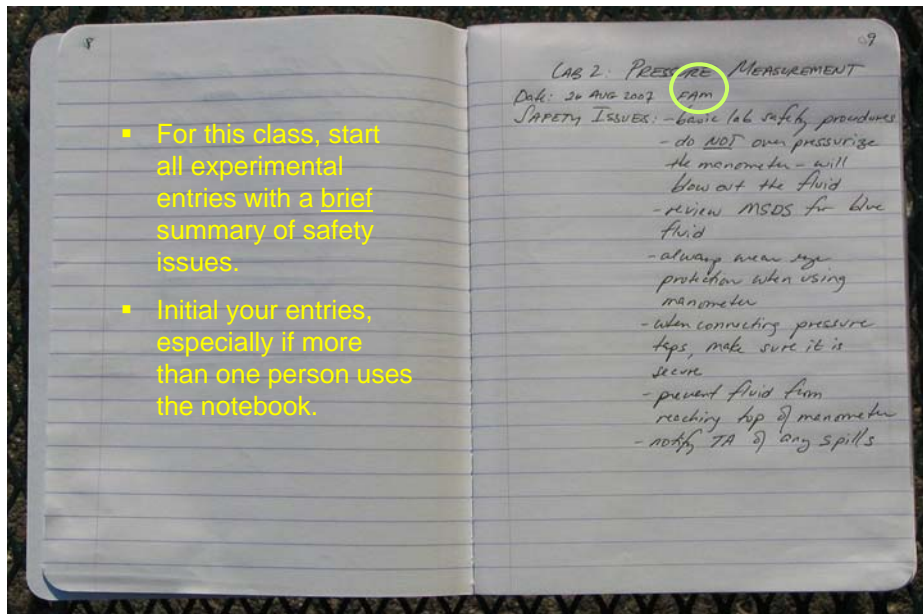 8
▪ For this class, start
all experimental
entries with a brief
summary of safety
issues.
▪ Initial your entries,
especially if more
than one person uses
the notebook.
09
LAB 2: PRESSURE MEASUREMENT
Date: 26 AUG 2007 FAM
SAFETY ISSUES: - basic lab safety procedures
- do NOT over pressurize
the manometer - will
blow out the fluid
- review MSDS for blue
fluid
- always wear eye
protection when using
manometer
- when connecting pressure
taps, make sure it is
secure
- prevent fluid from
reaching top of manometer
- notify TA of any spills